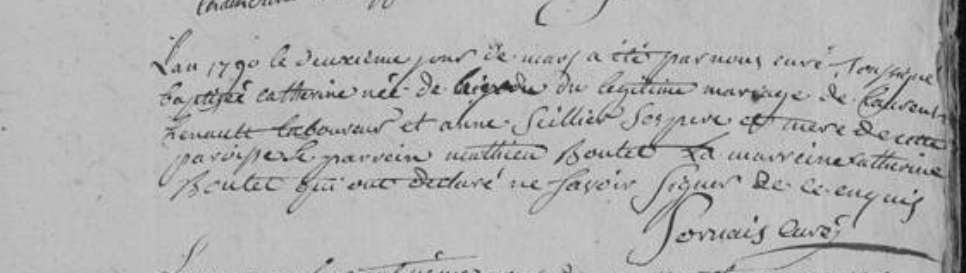 L'an 1790 le deuxième jour de mars a été par nous curé soussigné
baptisée catherine née de du legitime mariage de Laurent
Renault laboureur et anne Scillier ses pere et mere de cette
paroisse le parrein mathieu Boulet La marreine Catherine
Boulet qui ont declaré ne savoir signer de ce enquis
Gervais curé